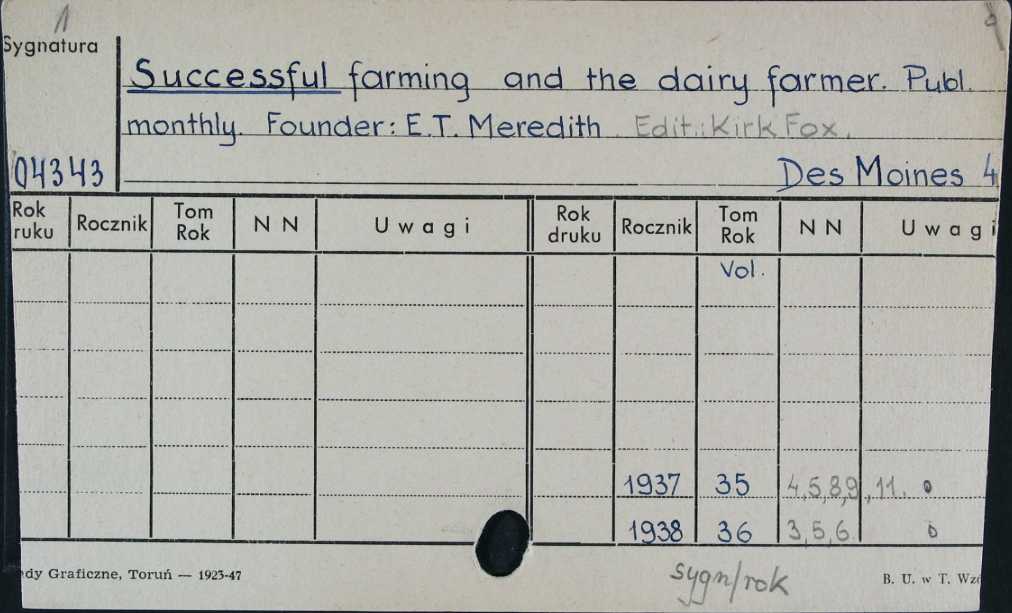 1
Sygnatura
Successful farming and the dairy farmer. Publ.
monthly. Founder: E.T. Meredith. Edit.: Kirk Fox.
04343
Des Moines 4
Rok ruku Rocznik Tom Rok N N Uwagi Rok druku Rocznik Tom Rok N N Uwagi
Vol.
1937 35 4,5,8,9,11. o
1938 36 3,5,6. o
dy Graficzne, Toruń — 1923-47
sygn/rok
B. U. w T. Wzó